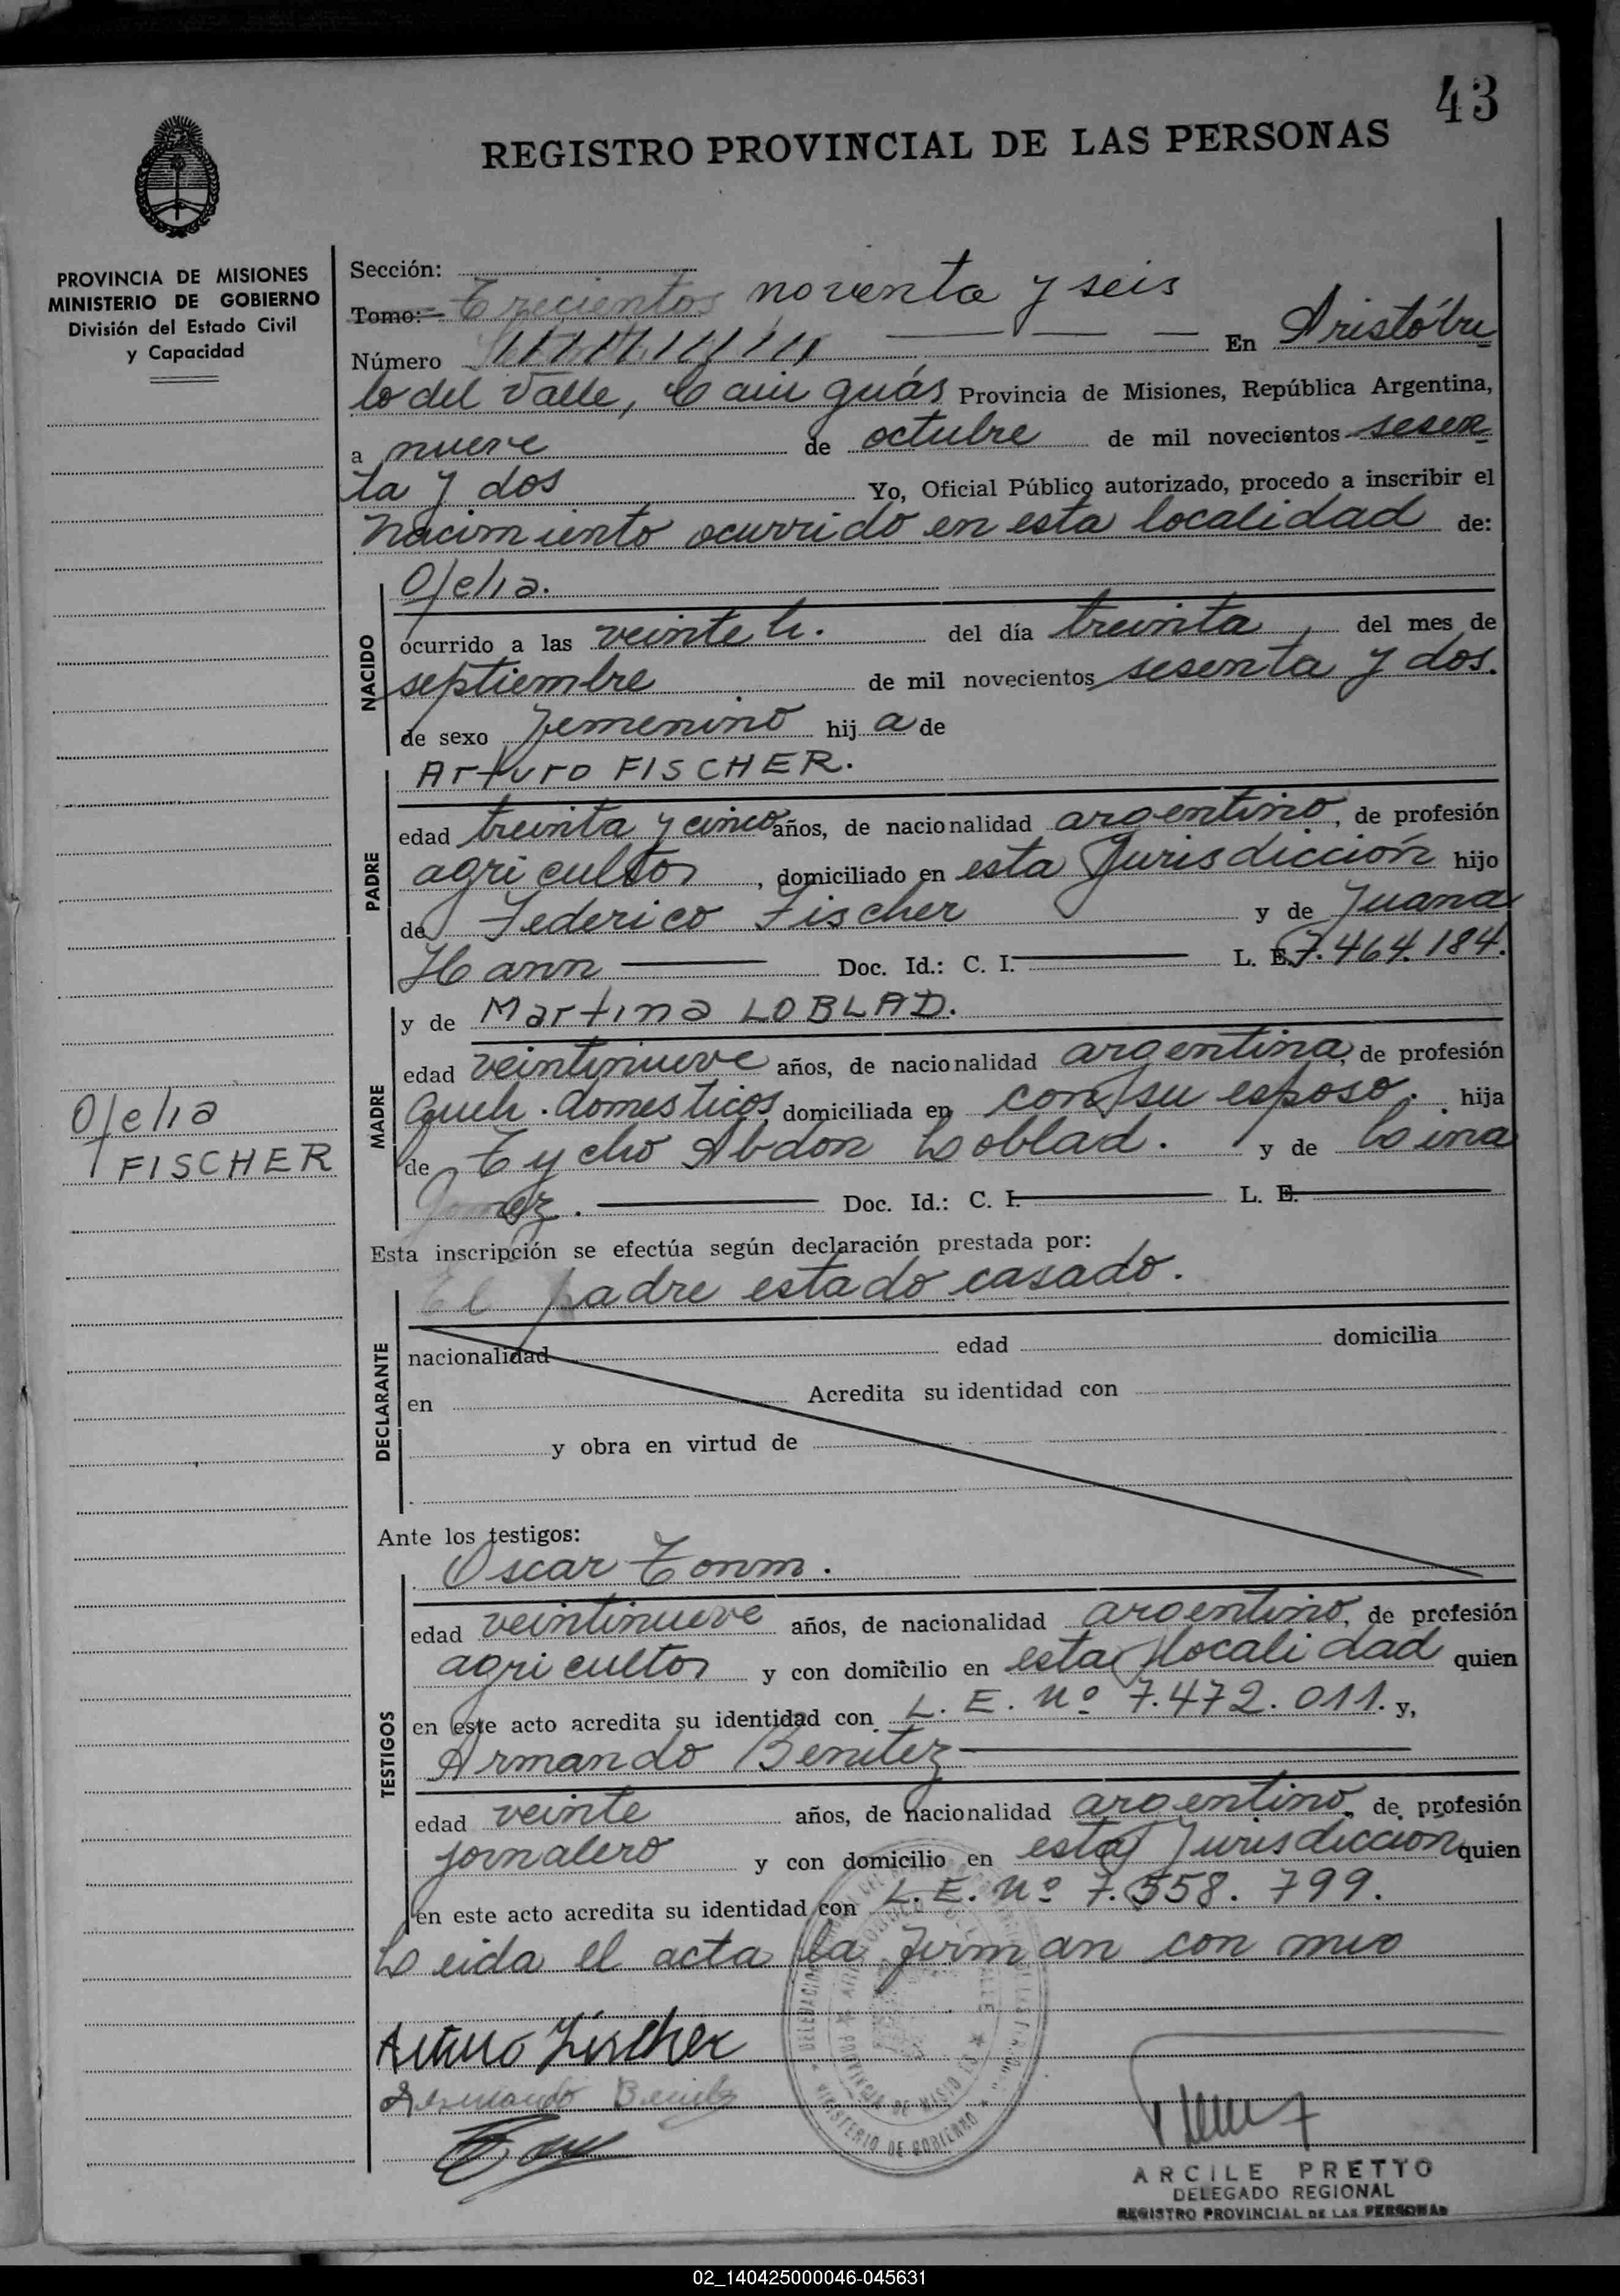 43
REGISTRO PROVINCIAL DE LAS PERSONAS
PROVINCIA DE MISIONES
MINISTERIO DE GOBIERNO
División del Estado Civil
y Capacidad
Sección:
Tomo: Trecientos noventa y seis
Número En Aristóbu
lo del Valle, Cain guás Provincia de Misiones, República Argentina,
a nueve de octubre de mil novecientos sesen
ta y dos Yo, Oficial Público autorizado, procedo a inscribir el
nacimiento ocurrido en esta localidad de:
NACIDO
Ofelia.
ocurrido a las veinte h. del día treinta del mes de
septiembre de mil novecientos sesenta y dos.
de sexo femenino hij a de
PADRE
Arturo FISCHER.
edad treinta y cinco años, de nacionalidad argentino, de profesión
agricultor, domiciliado en esta Jurisdicción hijo
de Federico Fischer y de Juana
Hann Doc. Id.: C. I. L. E. 7.464.184.
MADRE
y de Martina LOBLAD.
edad veintinueve años, de nacionalidad argentina, de profesión
queh. domesticos domiciliada en con su esposo. hija
de Tycho Abdon Loblad. y de Leina
Gomez. Doc. Id.: C. I. L. E.
Ofelia
FISCHER
Esta inscripción se efectúa según declaración prestada por:
DECLARANTE
El padre estado casado.
nacionalidad edad domicilia
en Acredita su identidad con
y obra en virtud de
Ante los testigos:
TESTIGOS
Oscar Tonm.
edad veintinueve años, de nacionalidad argentino, de profesión
agricultor y con domicilio en esta localidad quien
en este acto acredita su identidad con L. E. Nº 7.472.011. y,
Armando Benitez
edad veinte años, de nacionalidad argentino, de profesión
jornalero y con domicilio en esta Jurisdiccion quien
en este acto acredita su identidad con L. E. Nº 7.558.799.
Leida el acta la firman con migo
Arturo Fischer
Armando Benitez
MINISTERIO DE GOBIERNO
PROVINCIA DE MISIONES
ARCILE PRETTO
DELEGADO REGIONAL
REGISTRO PROVINCIAL DE LAS PERSONAS
02_140425000046-045631